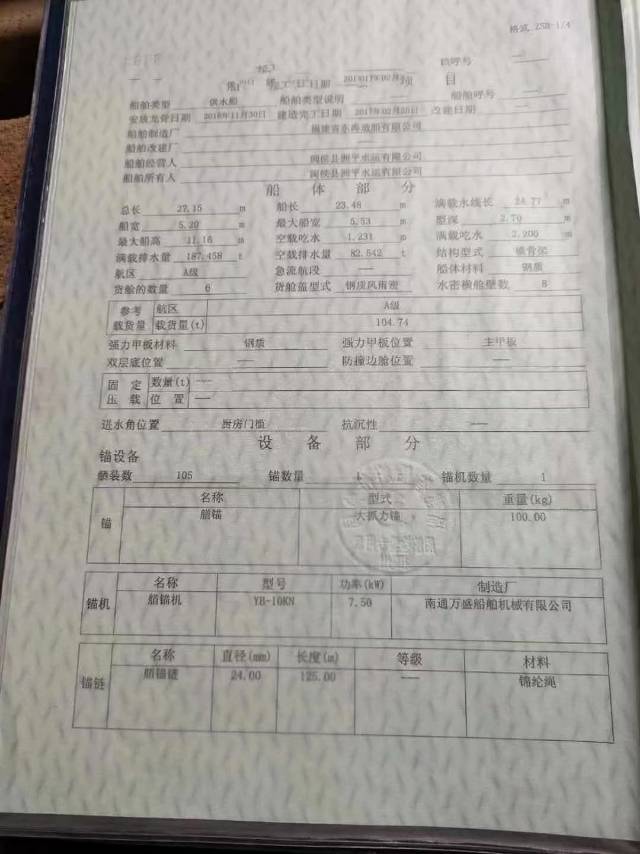 格式 ZSB-1/4
项 目
船舶呼号 —
船舶类型 供水船 船舶类型说明 —
安放龙骨日期 2016年11月30日 建造完工日期 2017年02月08日 改建日期 —
船舶制造厂
船舶改建厂 —
船舶经营人 闽侯县洲平水运有限公司
船舶所有人 闽侯县洲平水运有限公司
船 体 部 分
总长 27.15 m 船长 23.48 m 满载水线长 24.77 m
船宽 5.20 m 最大船宽 5.53 m 型深 2.70 m
最大船高 11.16 m 空载吃水 1.231 m 满载吃水 2.200 m
满载排水量 187.458 t 空载排水量 82.542 t 结构型式 横骨架
航区 A级 急流航段 — 船体材料 钢质
货舱的数量 6 货舱盖型式 钢质风雨密 水密横舱壁数 8
参考 航区 A级
载货量 载货量(t) 104.74
强力甲板材料 钢质 强力甲板位置 主甲板
双层底位置 — 防撞边舱位置 —
固定 数量(t) —
压载 位置 —
进水角位置 厨房门槛 抗沉性 —
设 备 部 分
锚设备
舾装数 105 锚数量 1 锚机数量 1
名称 型式 重量(kg)
锚 艏锚 大抓力锚 100.00
名称 型号 功率(kW) 制造厂
锚机 艏锚机 YB-10KN 7.50 南通万盛船舶机械有限公司
名称 直径(mm) 长度(m) 等级 材料
锚链 艏锚链 24.00 125.00 — 锦纶绳